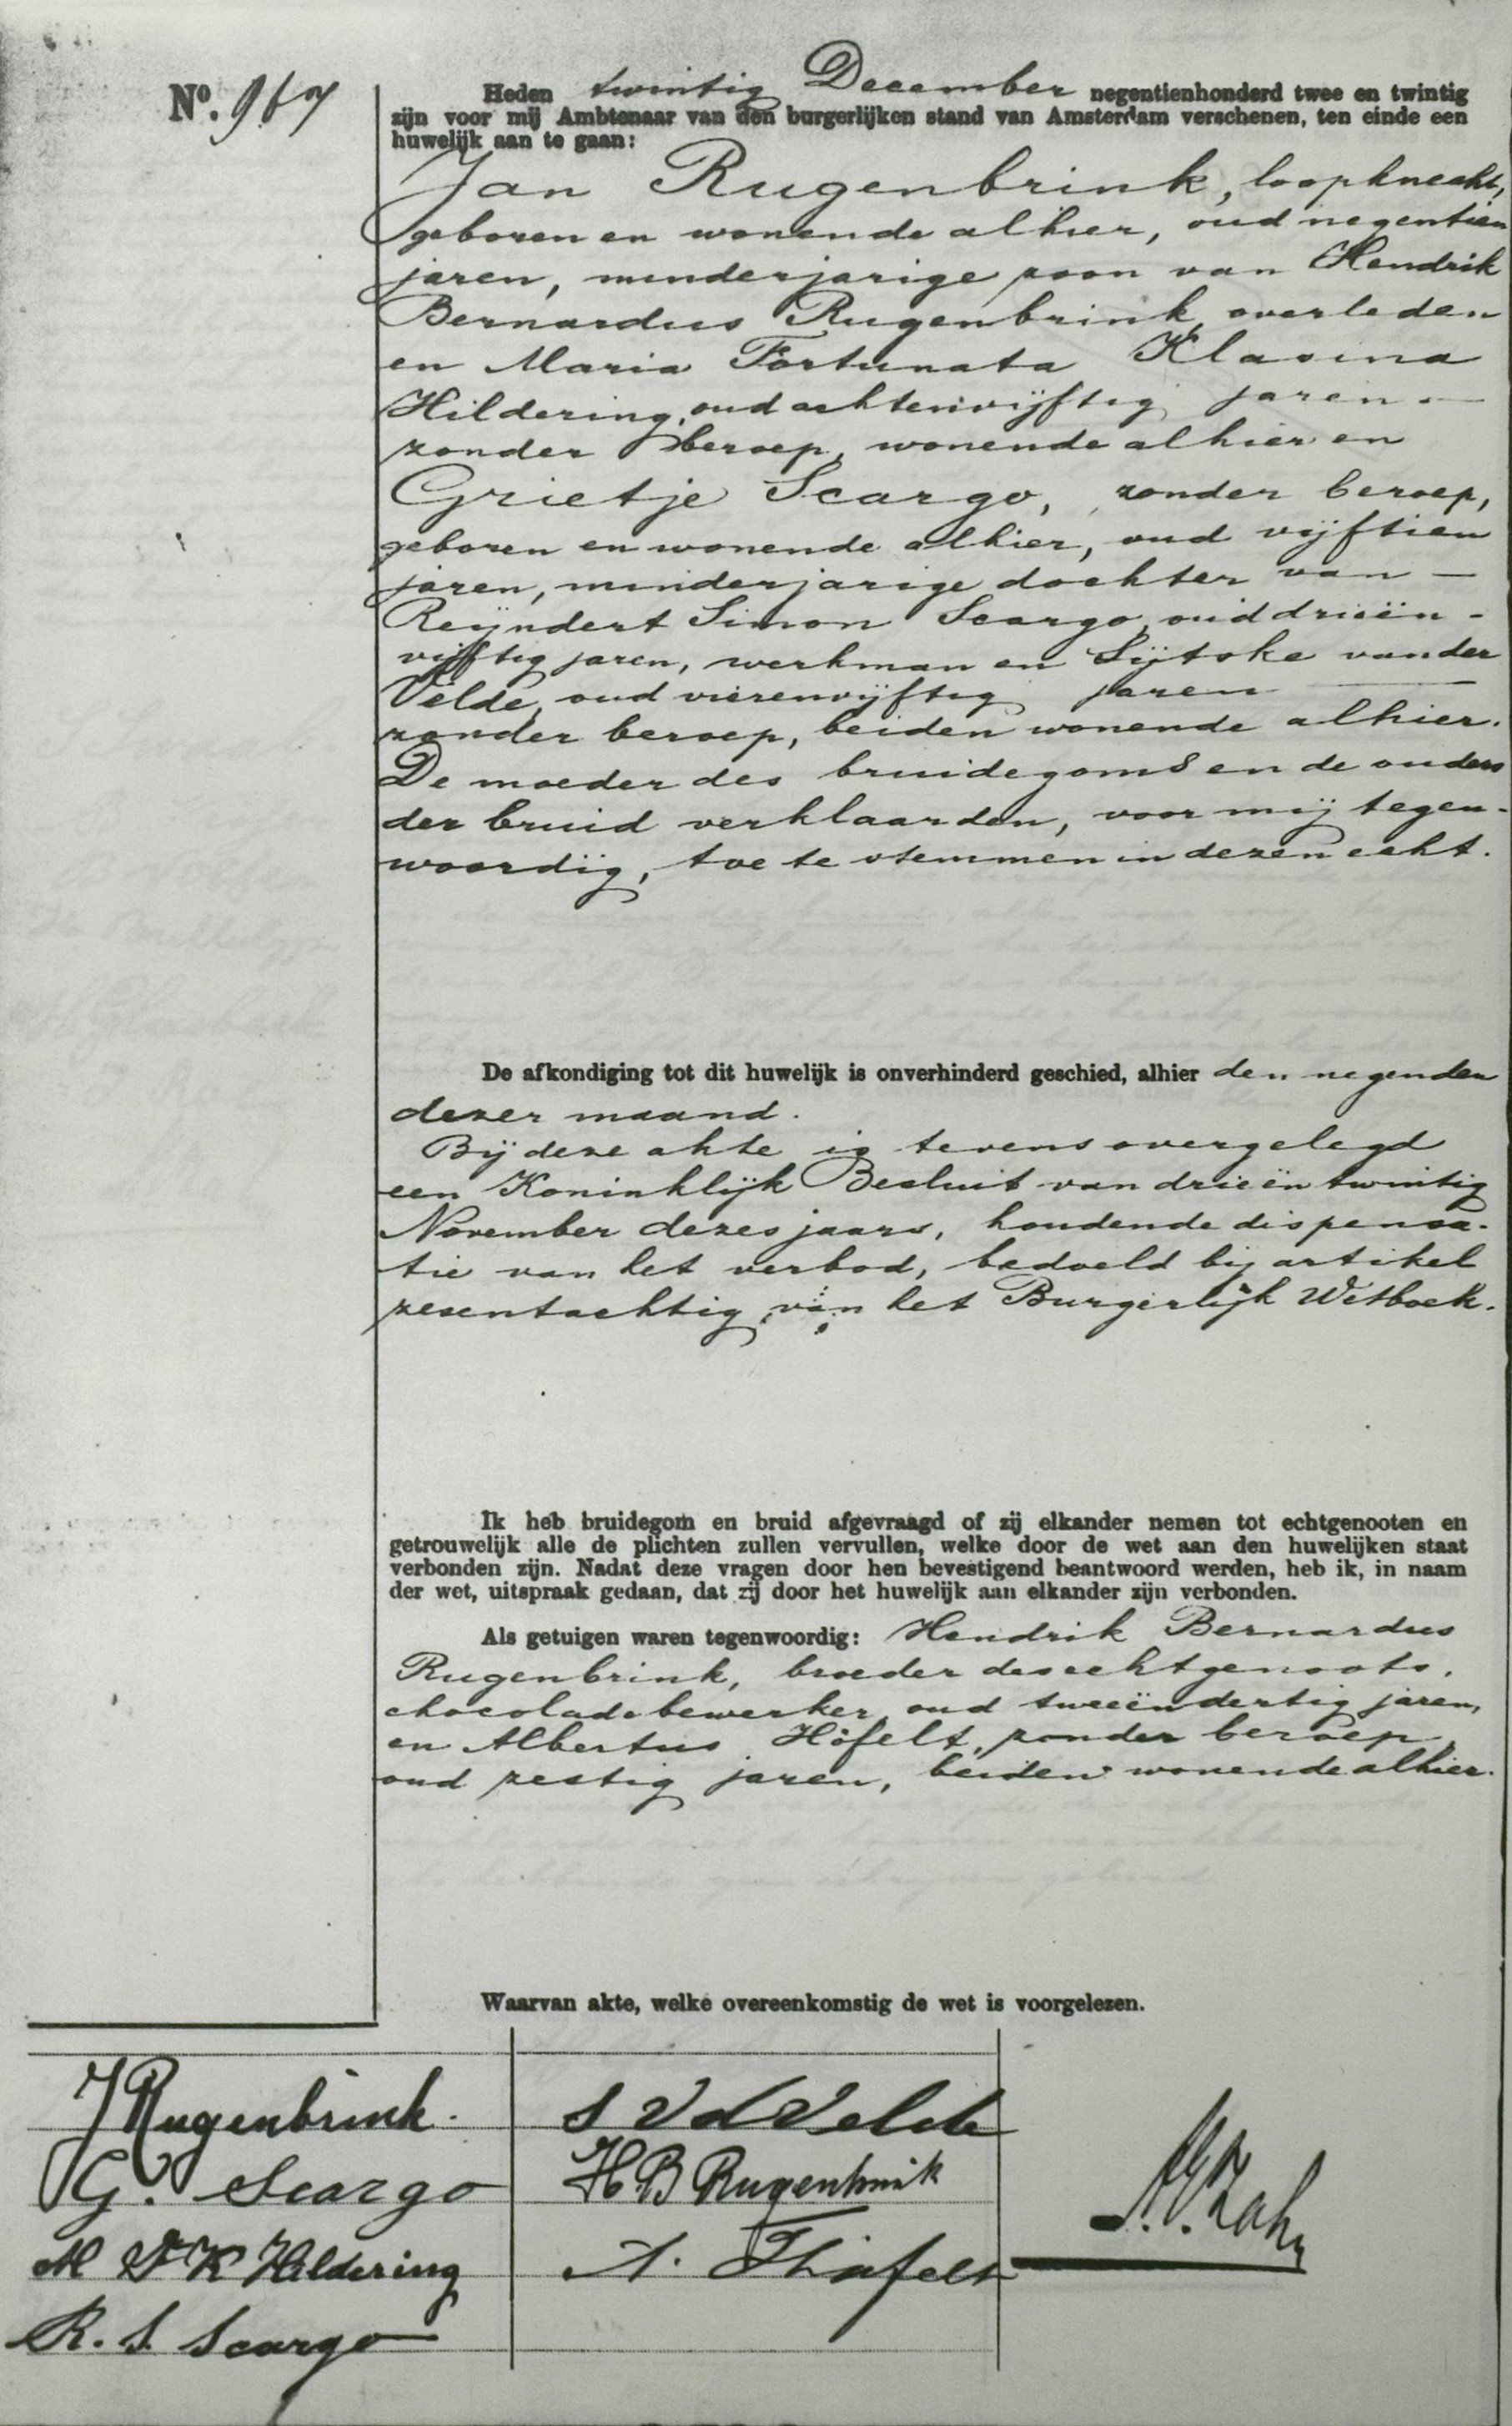 Nº. 967
Heden twintig December negentienhonderd twee en twintig
zijn voor mij Ambtenaar van den burgerlijken stand van Amsterdam verschenen, ten einde een
huwelijk aan te gaan:
Jan Rugenbrink, loopknecht,
geboren en wonende alhier, oud negentien
jaren, minderjarige zoon van Hendrik
Bernardus Rugenbrink, overleden
en Maria Fortunata Klasina
Hildering, oud achtenvijftig jaren —
zonder beroep, wonende alhier en
Grietje Scargo, zonder beroep,
geboren en wonende alhier, oud vijftien
jaren, minderjarige dochter van —
Reijndert Simon Scargo, oud drieën-
vijftig jaren, werkman en Sijtske van der
Velde, oud vierenvijftig jaren —
zonder beroep, beiden wonende alhier.
De moeder des bruidegoms en de ouders
der bruid verklaarden, voor mij tegen-
woordig, toe te stemmen in dezen echt.
De afkondiging tot dit huwelijk is onverhinderd geschied, alhier den negenden
dezer maand.
Bij deze akte is tevens overgelegd
een Koninklijk Besluit van drieëntwintig
November dezes jaars, houdende dispensa-
tie van het verbod, bedoeld bij artikel
zesentachtig van het Burgerlijk Wetboek.
Ik heb bruidegom en bruid afgevraagd of zij elkander nemen tot echtgenooten en
getrouwelijk alle de plichten zullen vervullen, welke door de wet aan den huwelijken staat
verbonden zijn. Nadat deze vragen door hen bevestigend beantwoord werden, heb ik, in naam
der wet, uitspraak gedaan, dat zij door het huwelijk aan elkander zijn verbonden.
Als getuigen waren tegenwoordig: Hendrik Bernardus
Rugenbrink, broeder des echtgenoots,
chocoladebewerker, oud tweeëndertig jaren,
en Albertus Höfelt, zonder beroep,
oud zestig jaren, beiden wonende alhier.
Waarvan akte, welke overeenkomstig de wet is voorgelezen.
J Rugenbrink.
G. Scargo
M F K Hildering
R. S. Scargo
S v d Velde
H B Rugenbrink